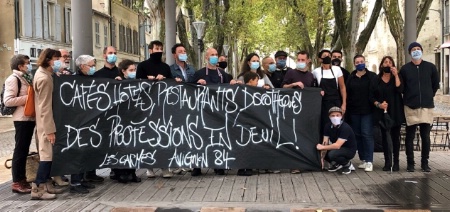 CAFÉS, HÔTELS, RESTAURANTS, DISCOTHEQUES
DES PROFESSIONS EN DEUIL!
LES CARMES AVIGNON 84